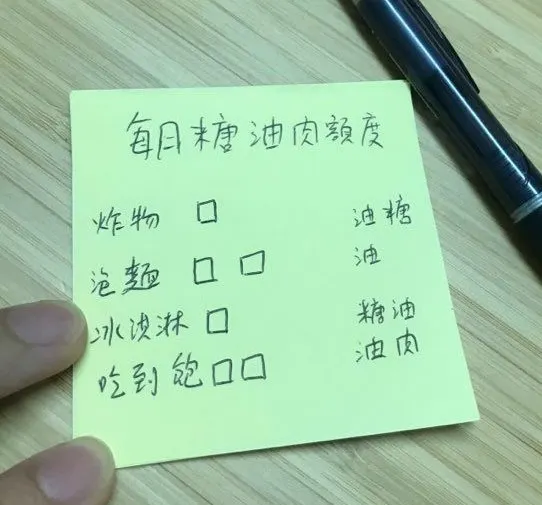 每日糖油肉額度
炸物 □ 油糖
泡麵 □ □ 油
冰淇淋 □ 糖油
吃到飽 □□ 油肉